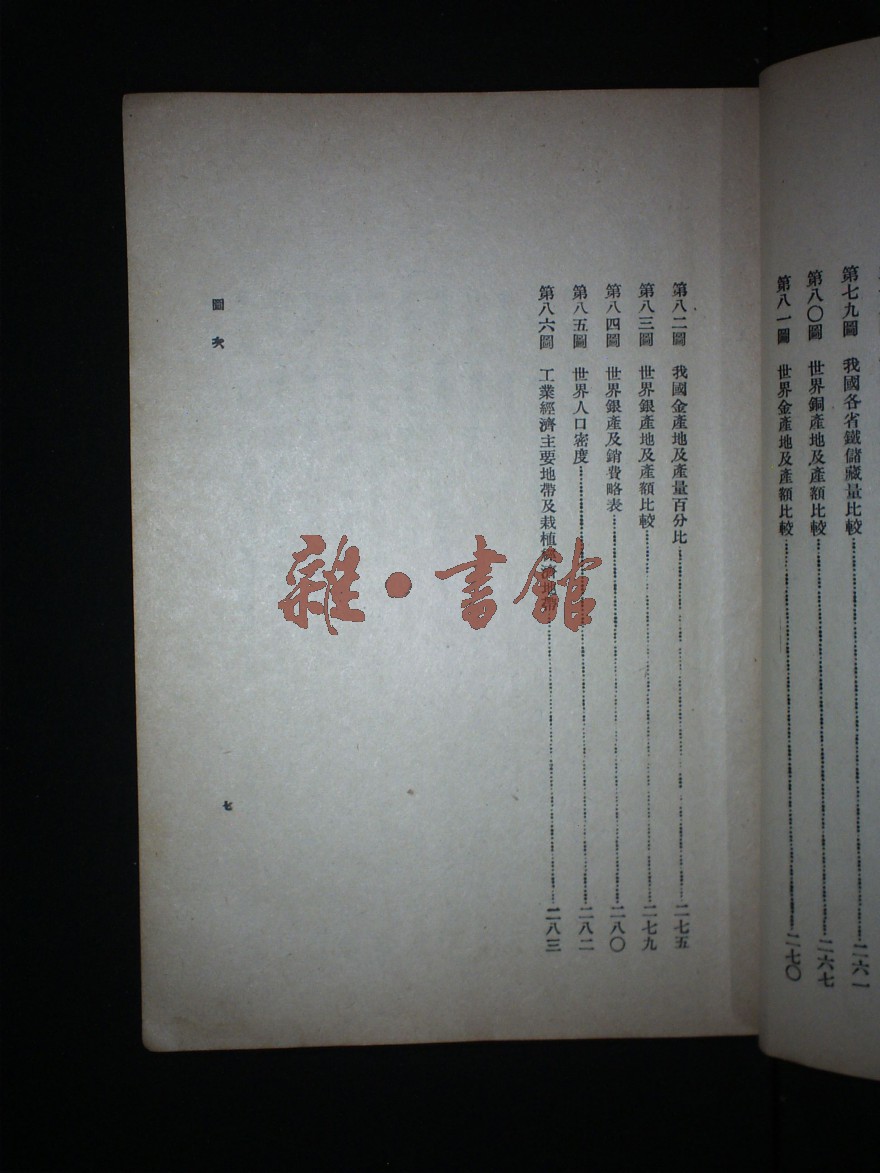 第七九圖 我國各省鐵儲藏量比較……二六一
第八〇圖 世界銅產地及產額比較……二六七
第八一圖 世界金產地及產額比較……二七〇
第八二圖 我國金產地及產量百分比……二七五
第八三圖 世界銀產地及產額比較……二七九
第八四圖 世界銀產及銷費略表……二八〇
第八五圖 世界人口密度……二八二
第八六圖 工業經濟主要地帶及栽植經濟地帶……二八三
圖次
七
雜·書館